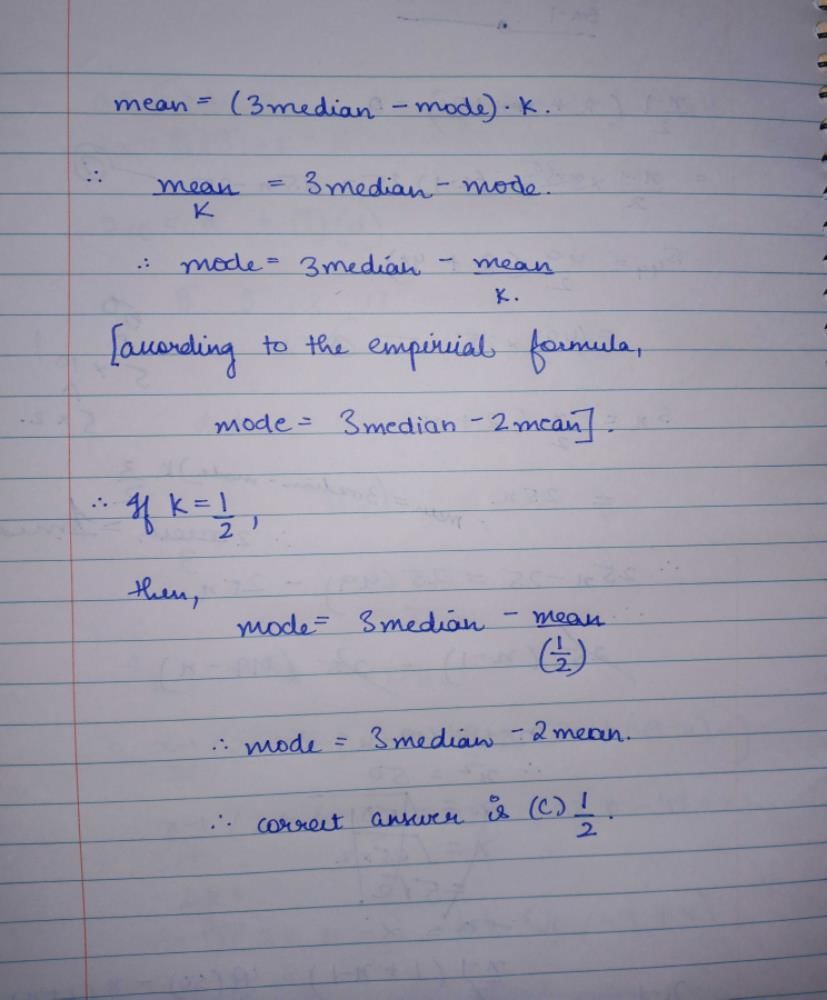 mean = (3median - mode) · K.
∴ mean/K = 3median - mode.
∴ mode = 3median - mean/K.
[according to the empirical formula,
mode = 3median - 2mean].
∴ If K = 1/2,
then,
mode = 3median - mean/(1/2)
∴ mode = 3median - 2mean.
∴ correct answer is (C) 1/2.